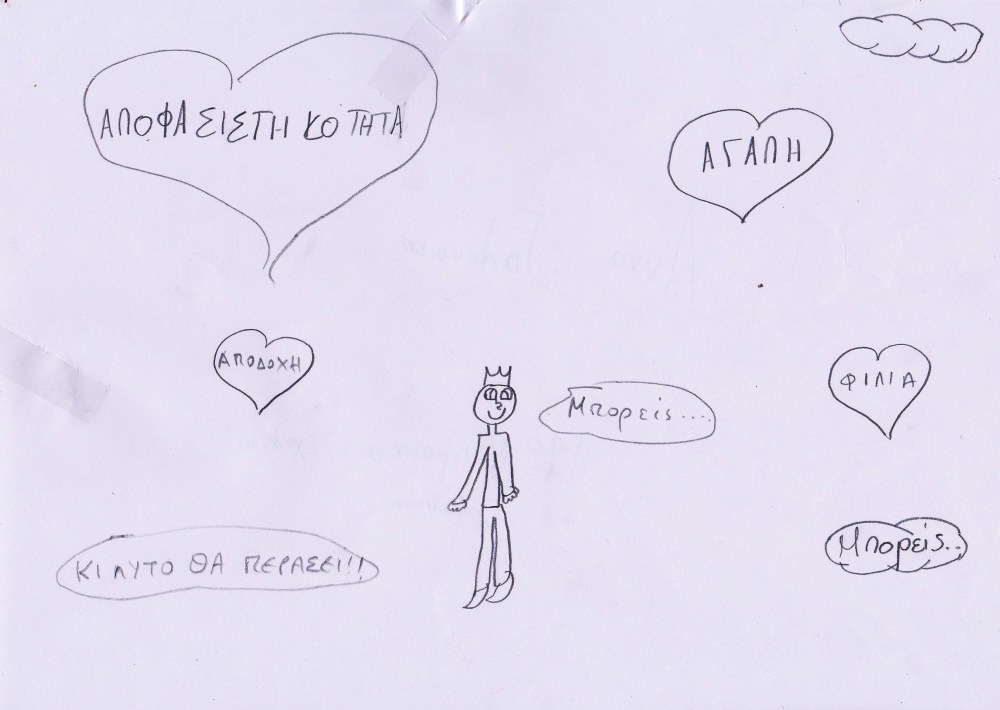 ΑΠΟΦΑΣΙΣΤΗΚΟΤΗΤΑ
ΑΓΑΠΗ
ΑΠΟΔΟΧΗ
ΦΙΛΙΑ
Μπορείς....
Μπορείς..
ΚΙ ΑΥΤΟ ΘΑ ΠΕΡΑΣΕΙ!!